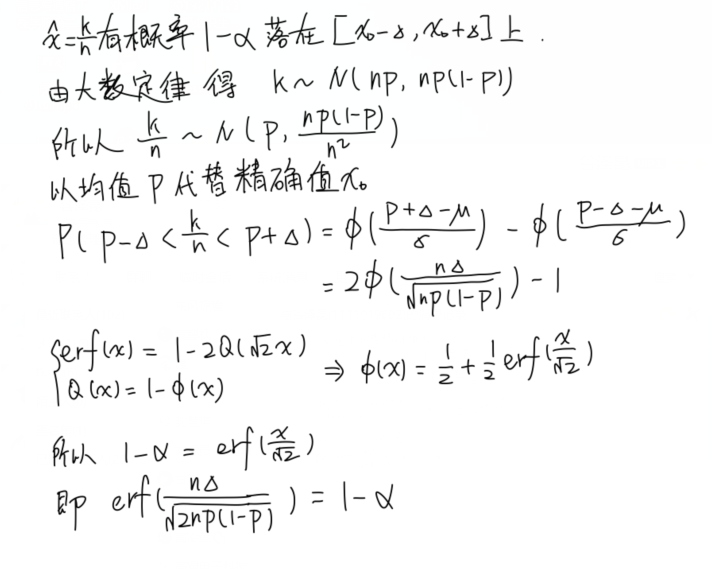 x̂=k/n有概率1-α落在[x₀-Δ,x₀+Δ]上.
由大数定律得 k~N(np, np(1-p))
所以 k/n ~ N(p, np(1-p)/n²)
以均值P代替精确值x₀
P(p-Δ<k/n<p+Δ)=ϕ((p+Δ-μ)/σ)-ϕ((p-Δ-μ)/σ)
=2ϕ(nΔ/√(np(1-p)))-1
{erf(x)=1-2Q(√2x)
Q(x)=1-ϕ(x) ⇒ ϕ(x)=1/2+1/2erf(x/√2)
所以 1-α=erf(x/√2)
即 erf(nΔ/√(2np(1-p)))=1-α